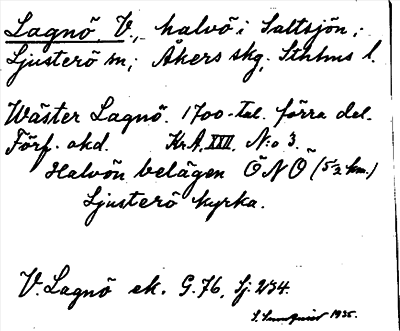 Lagnö, V., halvö i Saltsjön;
Ljusterö sn; Åkers skg, Sthlms l.
Wäster Lagnö. 1700-tal. förra del.
Förf. okd. KrA, XXII. N:o 3.
Halvön belägen ÖNÖ (5½ km.)
Ljusterö kyrka.
V. Lagnö ek. G. 76, Sj. 234.
1935.